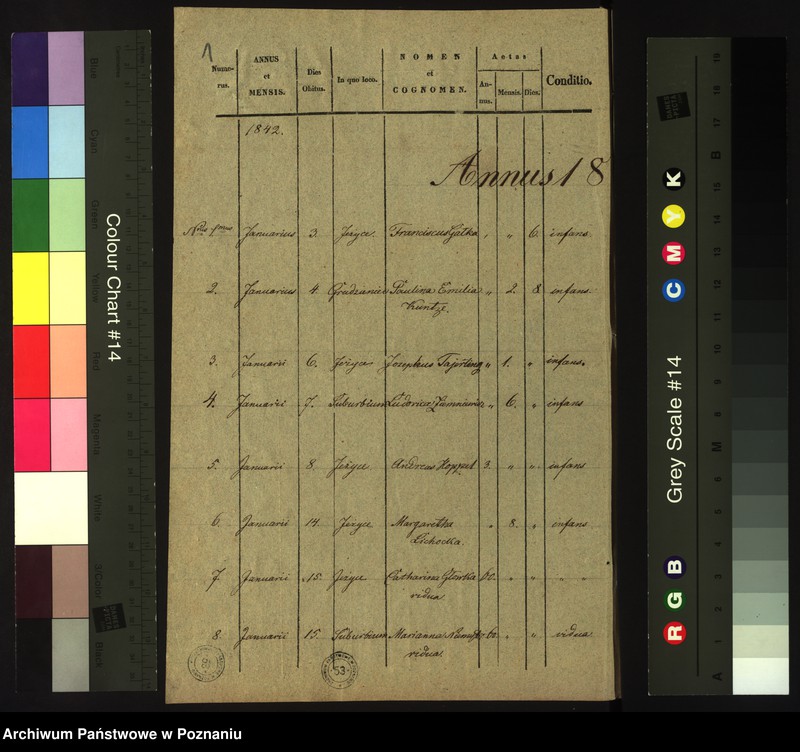 1
Nume-
rus.
ANNUS
et
MENSIS.
Dies
Obitus.
In quo loco.
NOMEN
et
COGNOMEN.
Aetas
An-
nus.
Mensis.
Dies.
Conditio.
1842.
Annus 18
Januarius 3. Jezyce Franciscus Gatka , „ 6. infans
2. Januarius 4. Paulina Emilia „ 2. 8 infans
Kuntze.
3. Januarii 6. Jezyce Josephus „ 1. „ infans.
4. Januarii 7. Suburbium Ludovica „ 6. „ infans
5. Januarii 8. Jezyce Andreas Hoppel 3. „ „ infans
6. Januarii 14. Jezyce Margaretha „ 8. „ infans
Cichocka.
7. Januarii 15. Jezyce Catharina 60. „ „ „ „
vidua
8. Januarii 15. Suburbium Marianna 62 „ „ vidua
vidua
53
Colour Chart #14
Blue
Cyan
Green
Yellow
Red
Magenta
White
3/Color
Black
Grey Scale #14
R G B
C M Y K
A
M
B
1
2
3
4
5
6
8
9
10
11
12
13
14
15
16
17
18
19
DANES PICTA
Archiwum Państwowe w Poznaniu